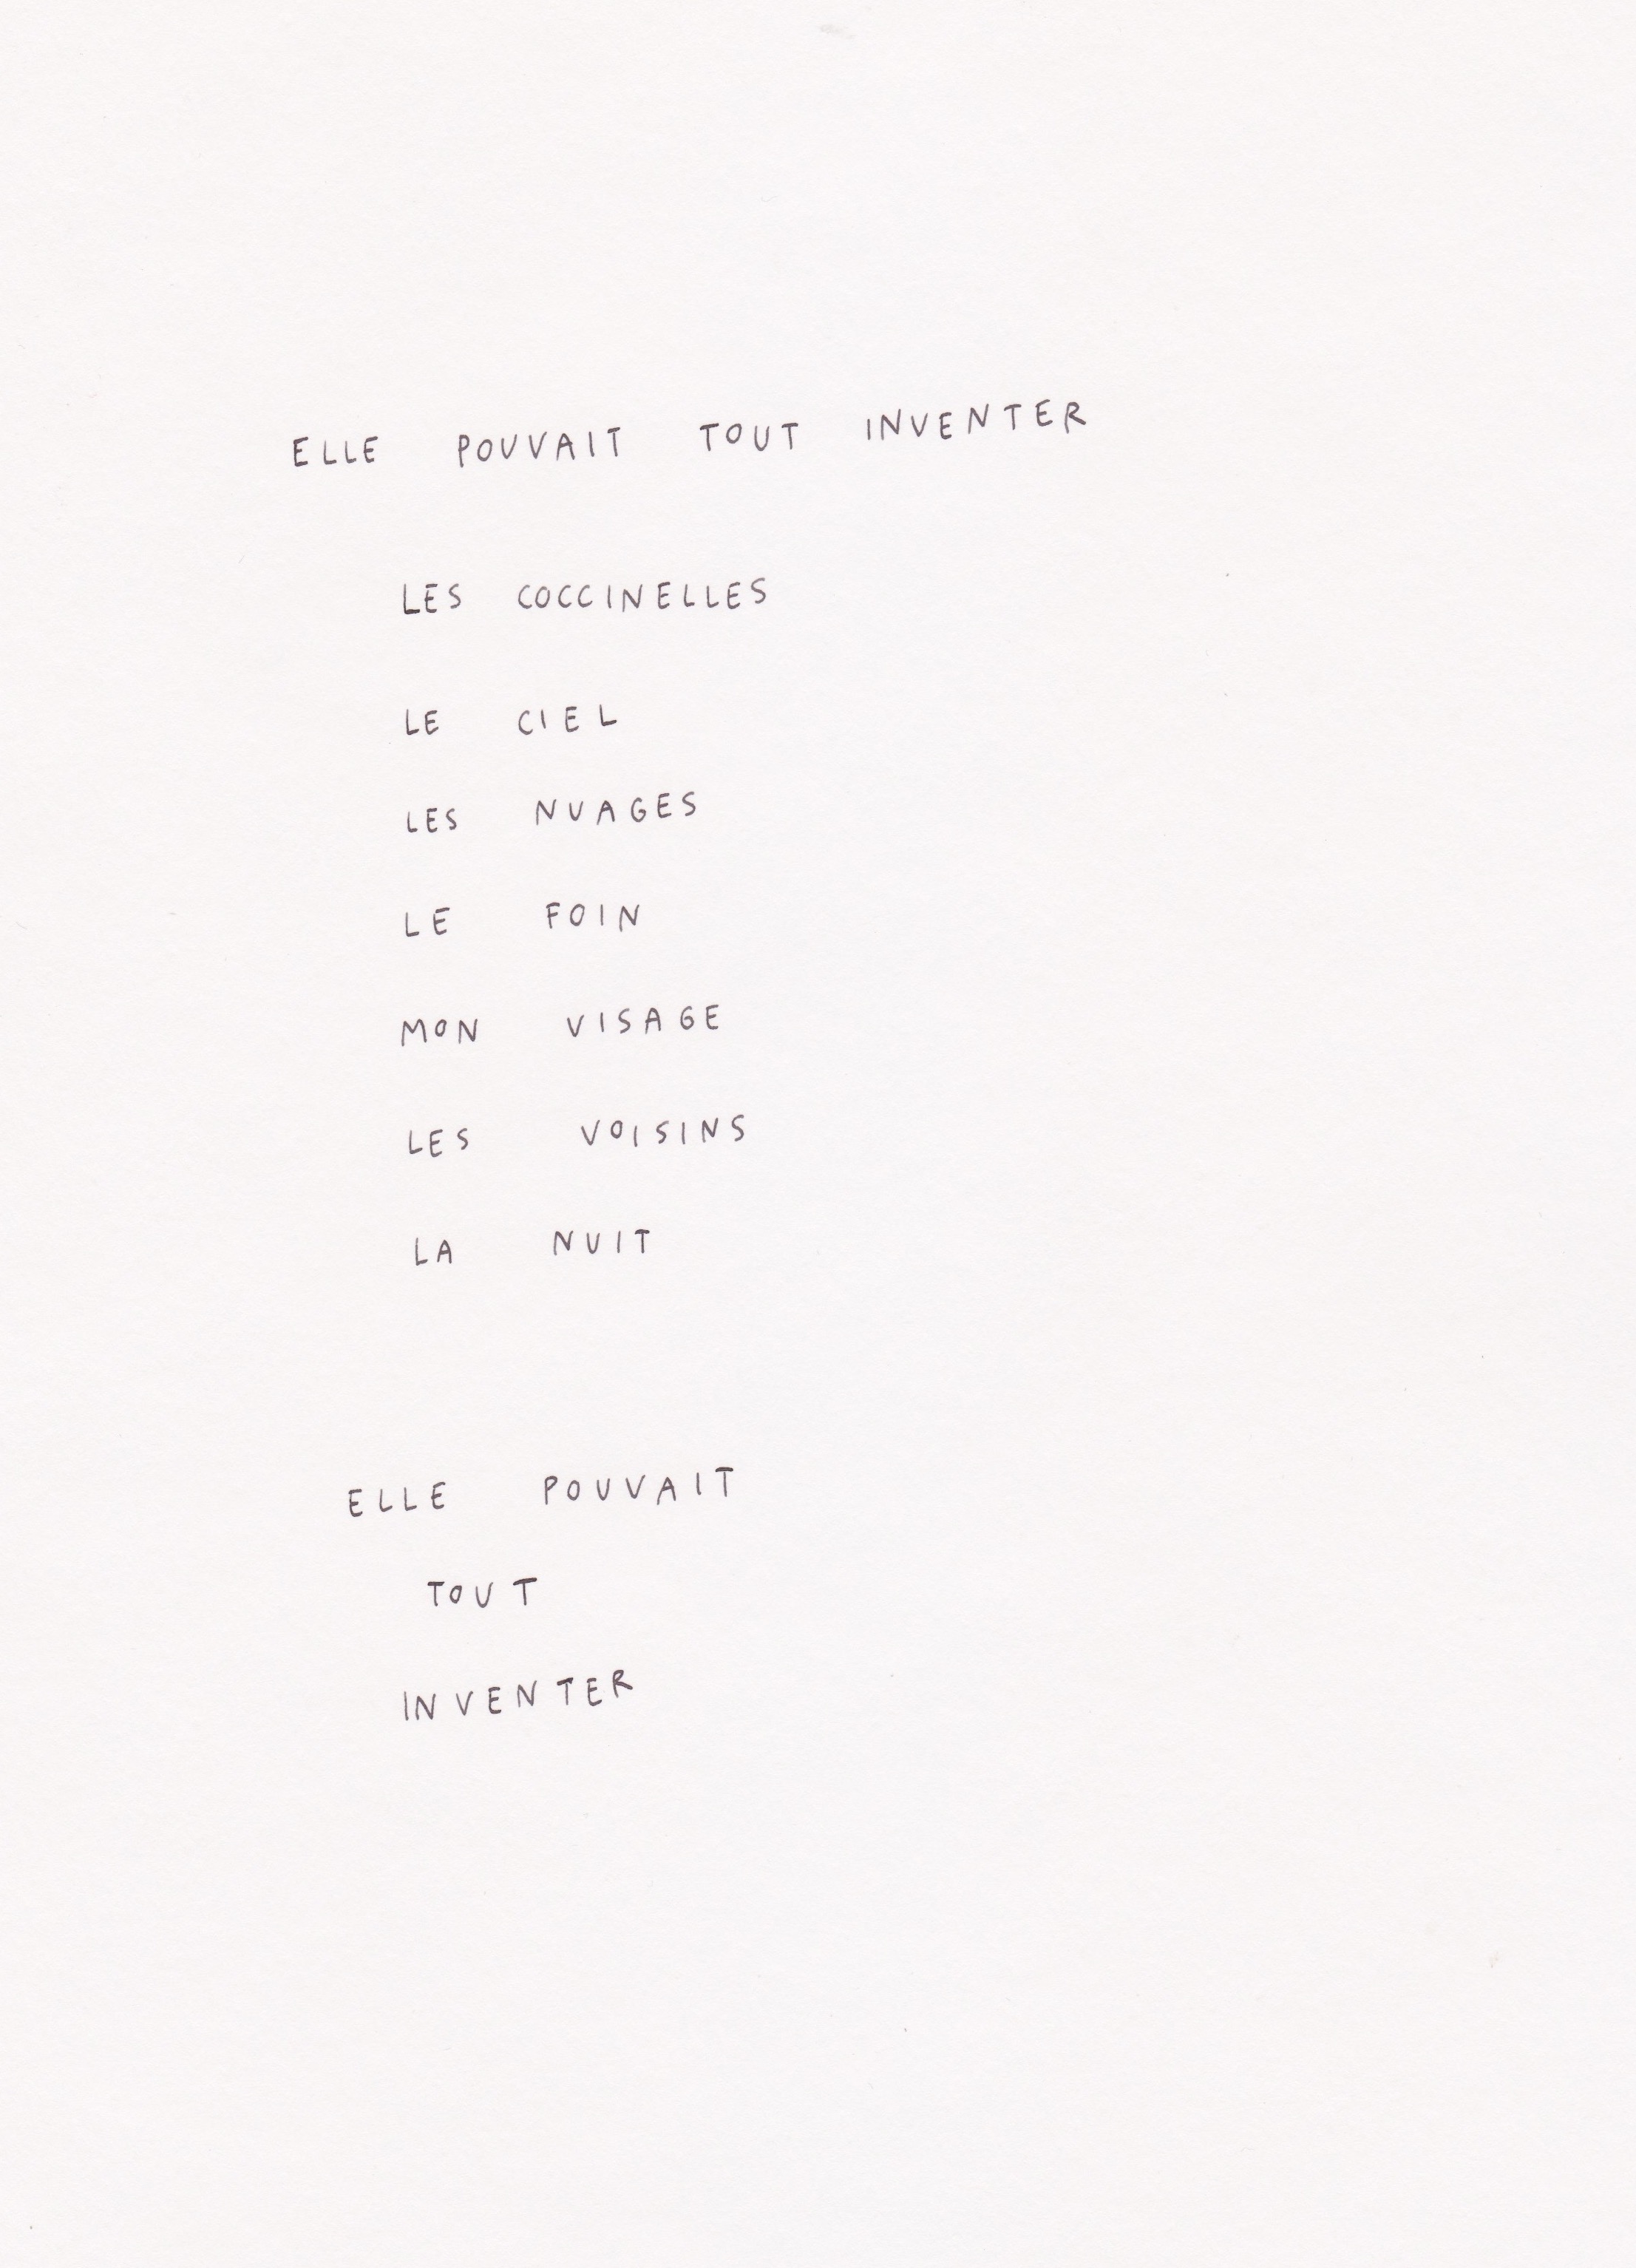 ELLE POUVAIT TOUT INVENTER
LES COCCINELLES
LE CIEL
LES NUAGES
LE FOIN
MON VISAGE
LES VOISINS
LA NUIT
ELLE POUVAIT
TOUT
INVENTER